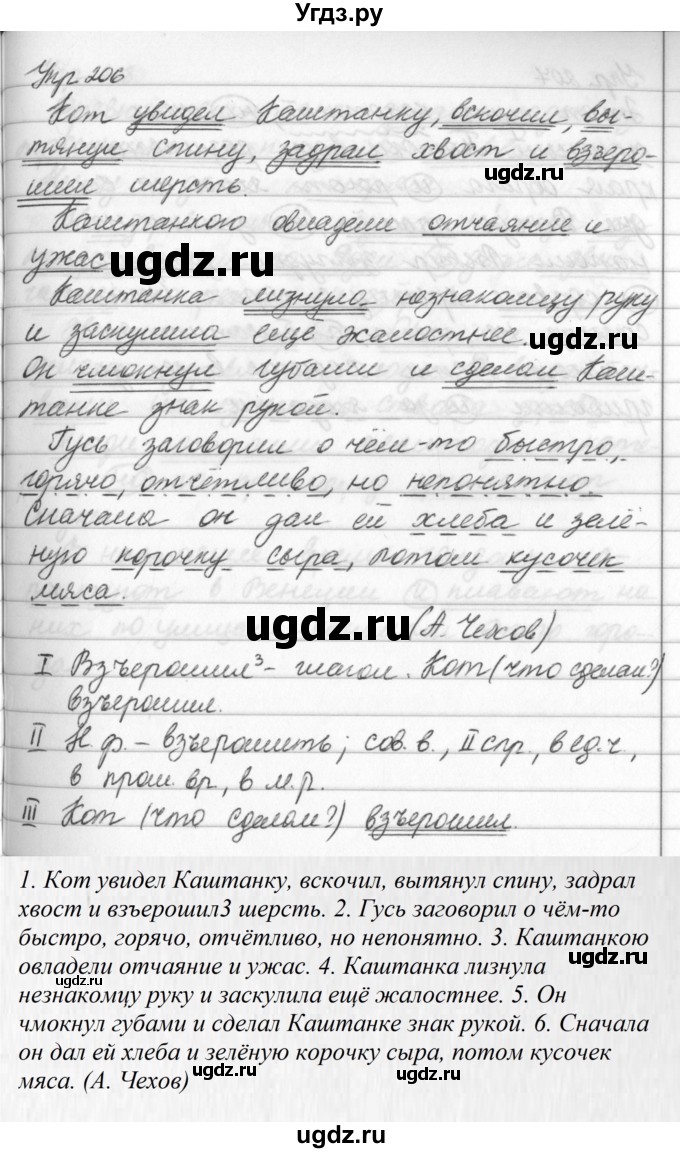 Угдз.ру
Упр 206
Кот увидел Каштанку, вскочил, вы-
тянул спину, задрал хвост и взъеро-
шил шерсть.
ugdz.ru
Каштанкою овладели отчаяние и
ужас
ugdz.ru
Каштанка лизнула незнакомцу руку
и заскулила ещё жалостнее
ugdz.ru
Он чмокнул губами и сделал Каш-
танке знак рукой.
Гусь заговорил о чём-то быстро,
горячо, отчётливо, но непонятно
ugdz.ru
Сначала он дал ей хлеба и зелё-
ную корочку сыра, потом кусочек
мяса.
ugdz.ru
(А. Чехов)
I Взъерошил³ - глагол. Кот (что сделал?)
взъерошил.
II Н.ф. - взъерошить; сов. в., II спр., в ед.ч.,
в прош. вр., в м.р.
III Кот (что сделал?) взъерошил.
1. Кот увидел Каштанку, вскочил, вытянул спину, задрал
хвост и взъерошил3 шерсть. 2. Гусь заговорил о чём-то
быстро, горячо, отчётливо, но непонятно. 3. Каштанкою
овладели отчаяние и ужас. 4. Каштанка лизнула
незнакомцу руку и заскулила ещё жалостнее. 5. Он
чмокнул губами и сделал Каштанке знак рукой. 6. Сначала
он дал ей хлеба и зелёную корочку сыра, потом кусочек
мяса. (А. Чехов)
ugdz.ru
ugdz.ru
ugdz.ru
ugdz.ru